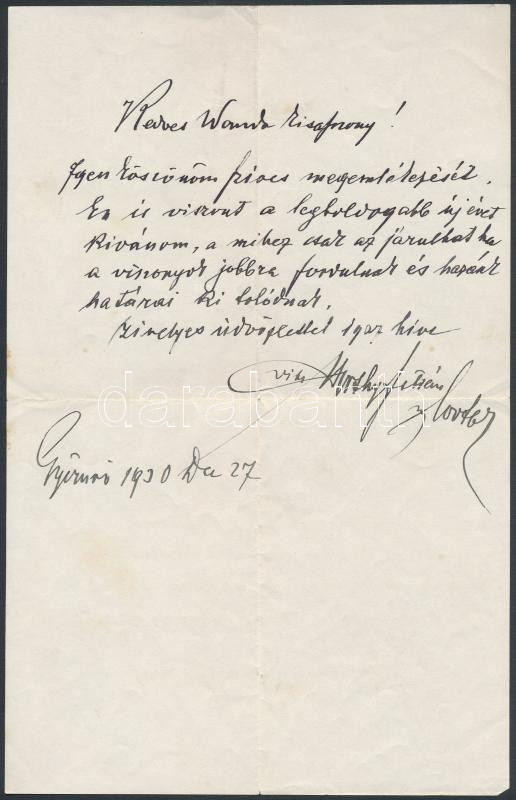 Kedves Wanda kisasszony!
Igen köszönöm szives megemlékezését.
En is viszont a legboldogabb új évet
kivánom, a mihez csak az járulhat ha
a viszonyok jobbra fordulnak és hazánk
határai ki tolódnak.
szivélyes üdvözlettel igaz híve
vitz Horthy István
darabanth
1930 Dec 27